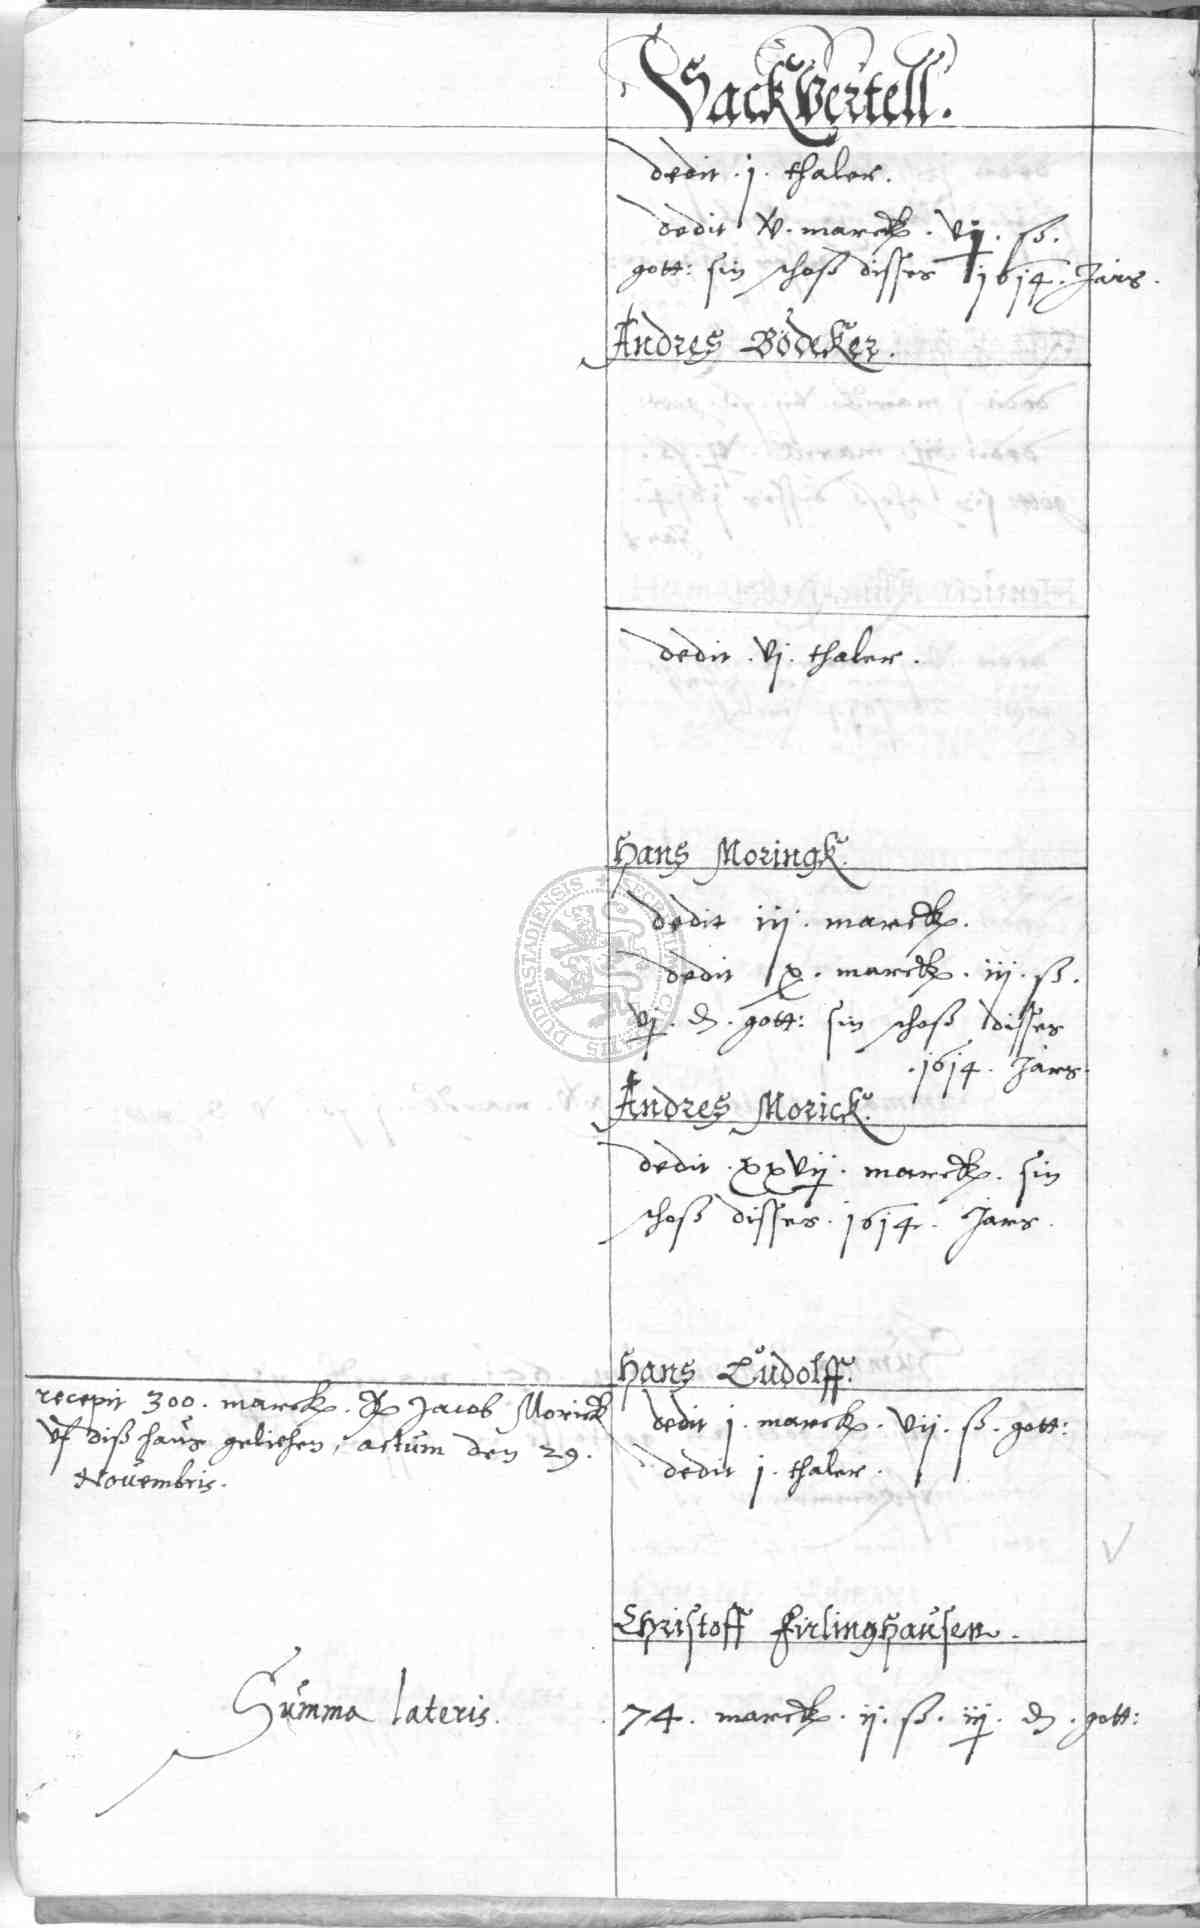 SackVertell.
dedit . j . thaler .
dedit v . marck . vij . ß .
gott : sin schoß disses 1614 . Jars .
Andres Bödeker .
dedit . vj . thaler .
Hans Moringk .
dedit iij . marck .
dedit x . marck . iij . ß .
vj . d . gott : sin schoß disses
. 1614 . Jars .
Andres Morick .
dedit . xxvij . marck . sin
schoß disses . 1614 . Jars .
Hans Ludolff .
recepit 300 . marck . Jacob Morick
uf diß haus geliehen , actum den 29 .
Novembris .
dedit j . marck . vij . ß . gott :
dedit j . thaler .
Christoff Firlinghausen .
Summa lateris . 74 . marck . ij . ß . iij . d . gott :
DUDERSTADIENSIS